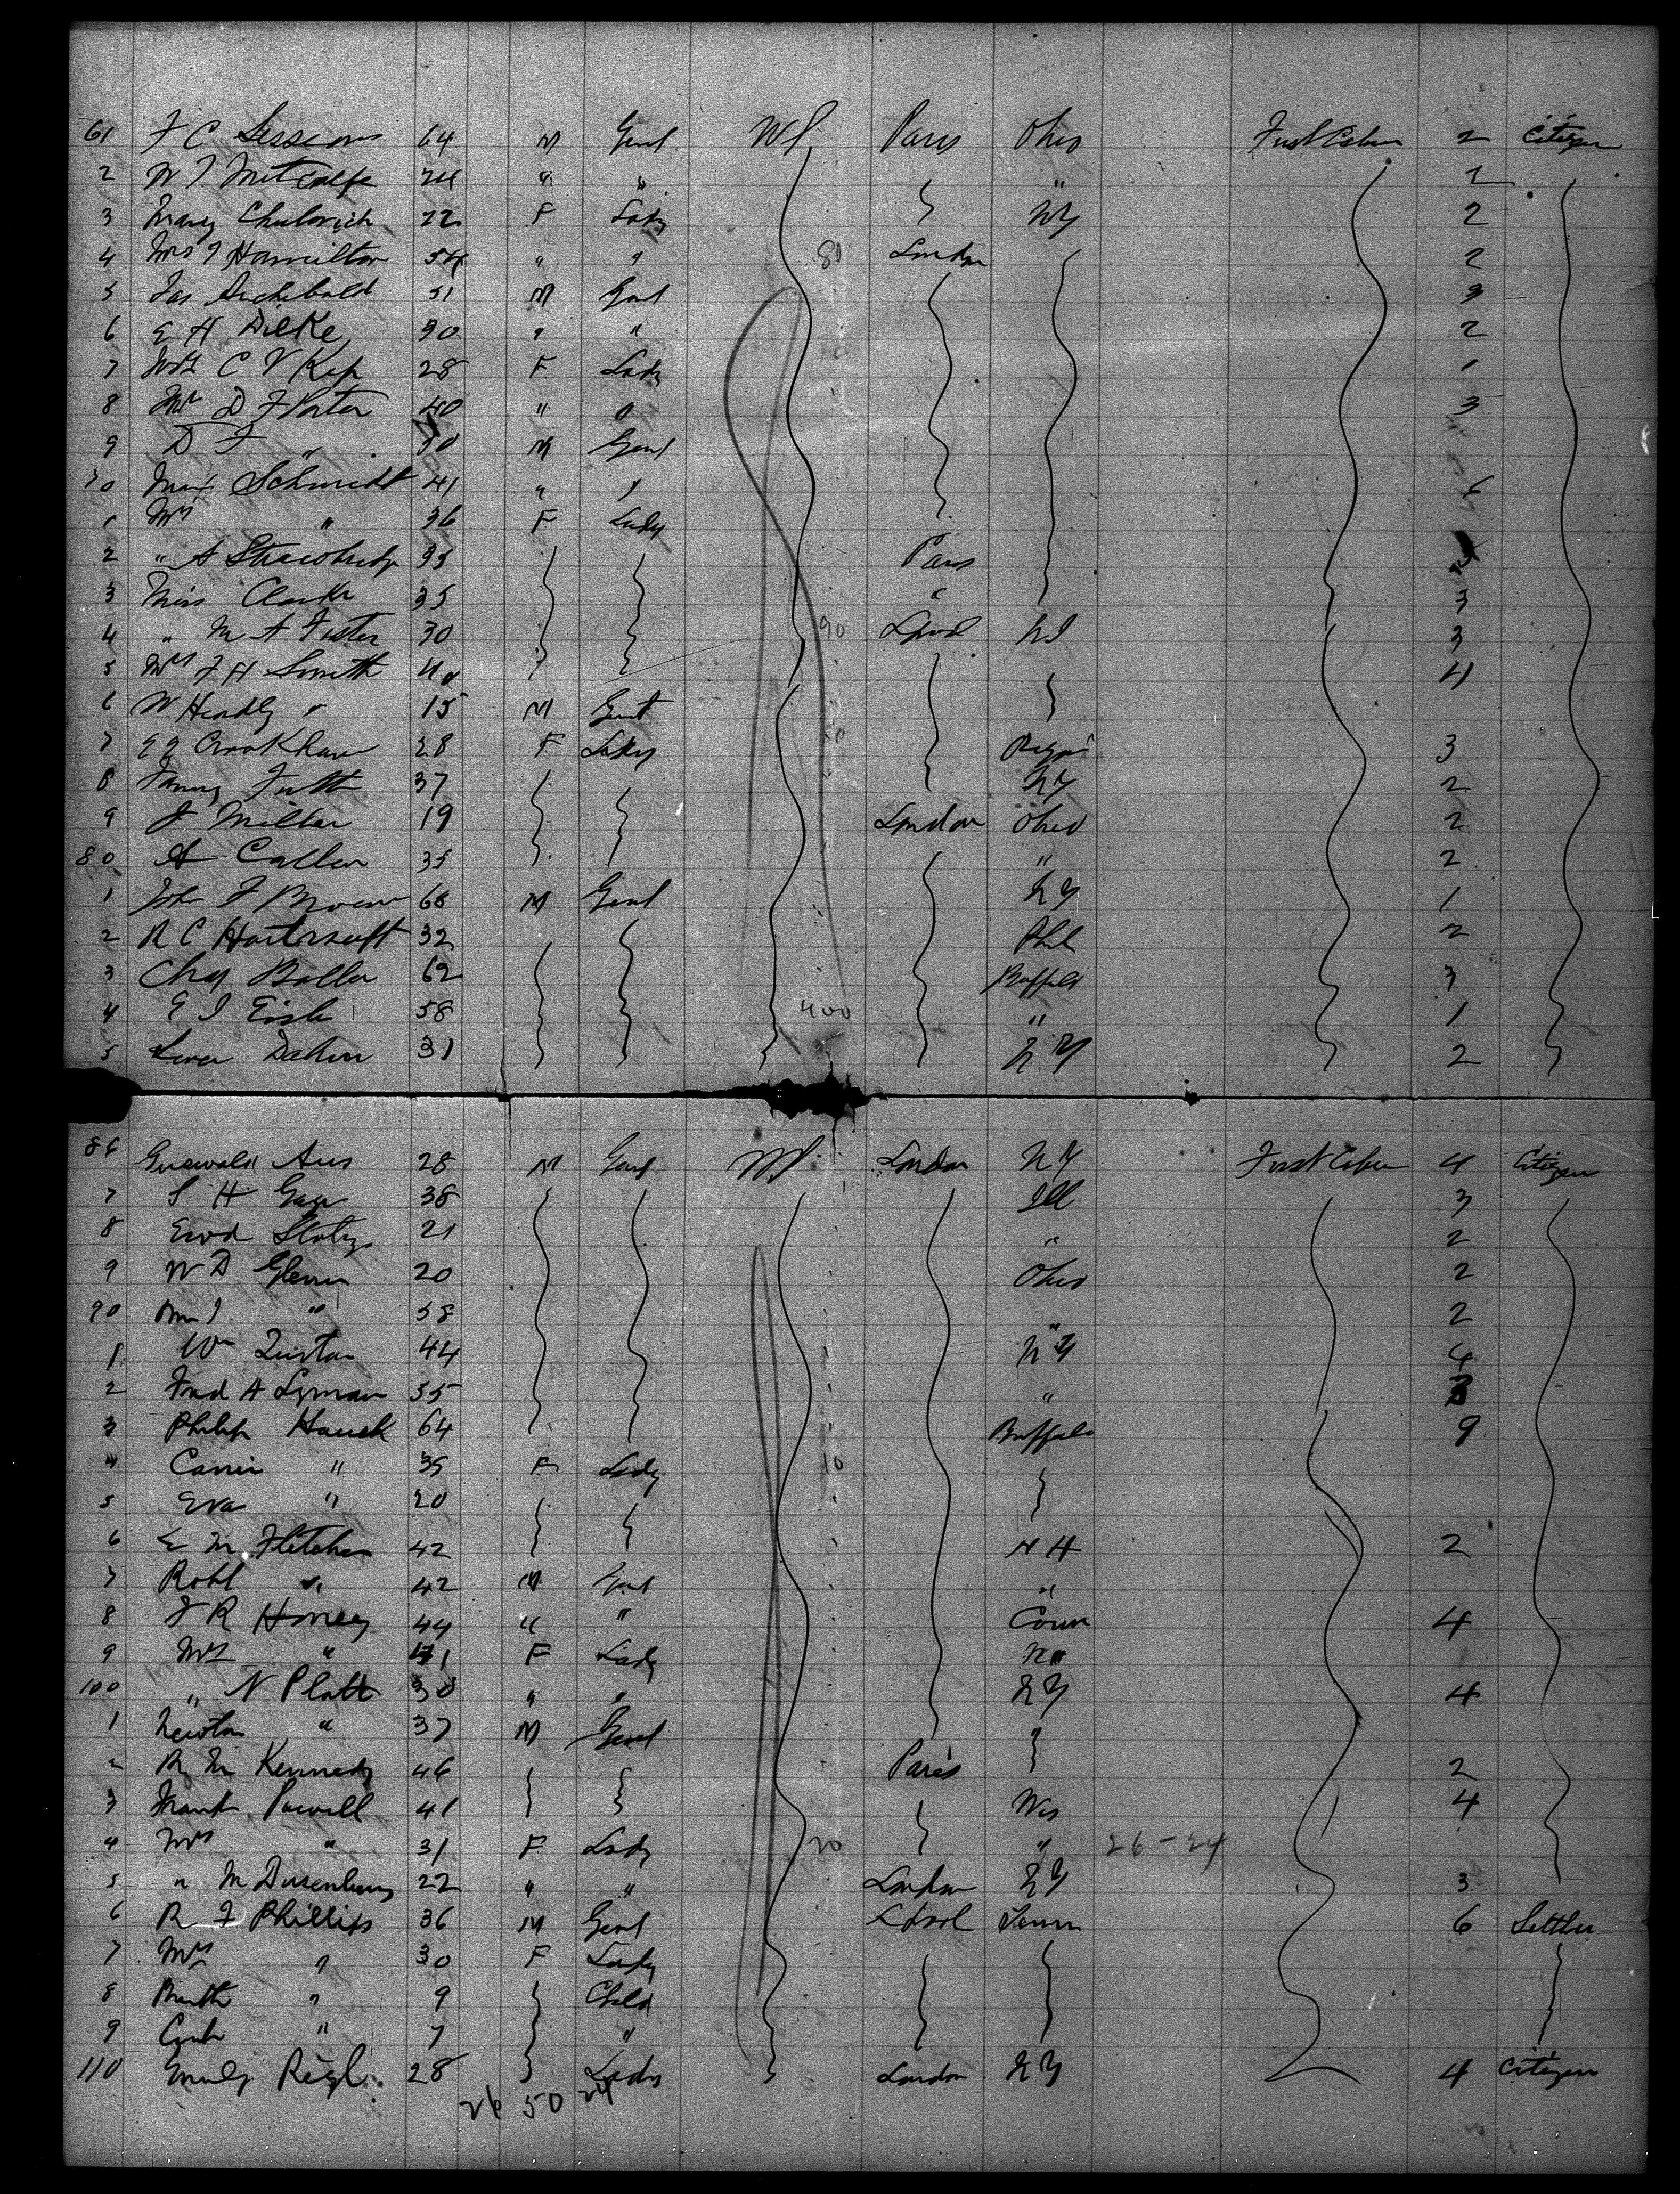 61 F C Sessions 64 M Gent US Paris Ohio First Cabin 2 Citizen
2 W J Metcalfe 24 " " " 2
3 Mary 22 F Lady NY 2
4 Mrs J Hamilton 54 " " 80 London 2
5 Jas Archibald 51 M Gent 3
6 E H Dilke 30 " " 2
7 Mrs C V 28 F Lady 1
8 Mrs D F Porter 40 " " 3
9 D F " 50 M Gent
70 Max Schmidt 41 " "
1 Mrs " 36 F Lady
2 " A 35 Paris
3 Miss Clarke 35 " 3
4 " M A Foster 30 90 Lpool 3
5 Mrs J H Smith 40 4
6 W Hendly " 15 M Gent
7 28 F Lady 3
8 Fanny 37 NY 2
9 J Miller 19 London Ohio 2
80 A 35 " 2
1 John F Brown 68 M Gent NY 1
2 R C Hartranft 32 Phil 2
3 Chas 62 Buffalo 3
4 E J 58 400 " 1
5 31 NY 2
86 28 M Gent US London NY First Cabin 4 Citizen
7 S H Gage 38 Ill 3
8 21 " 2
9 W D Glenn 20 Ohio 2
90 " 58 " 2
1 Wm 44 NY 4
2 Fred A Lyman 35 " 3
3 Philip Hauck 64 Buffalo 9
4 Carrie " 35 F Lady 10
5 Eva " 20
6 E M Fletcher 42 N H 2
7 Robt " 42 M Gent "
8 F R Honey 44 " " Conn 4
9 Mrs " 41 F Lady
100 " N Platt 30 " " NY 4
1 Newton " 37 M Gent
2 R M Kennedy 46 Paris 2
3 Frank Powell 41 Wis 4
4 Mrs " 31 F Lady 20 " 26-24
5 " M Dusenbury 22 " " London NY 3
6 R F Phillips 36 M Gent Lpool Tenn 6 Settler
7 Mrs " 30 F Lady
8 " 9 Child
9 " 7 "
110 Emily 28 Lady London NY 4 Citizen
26 50 24